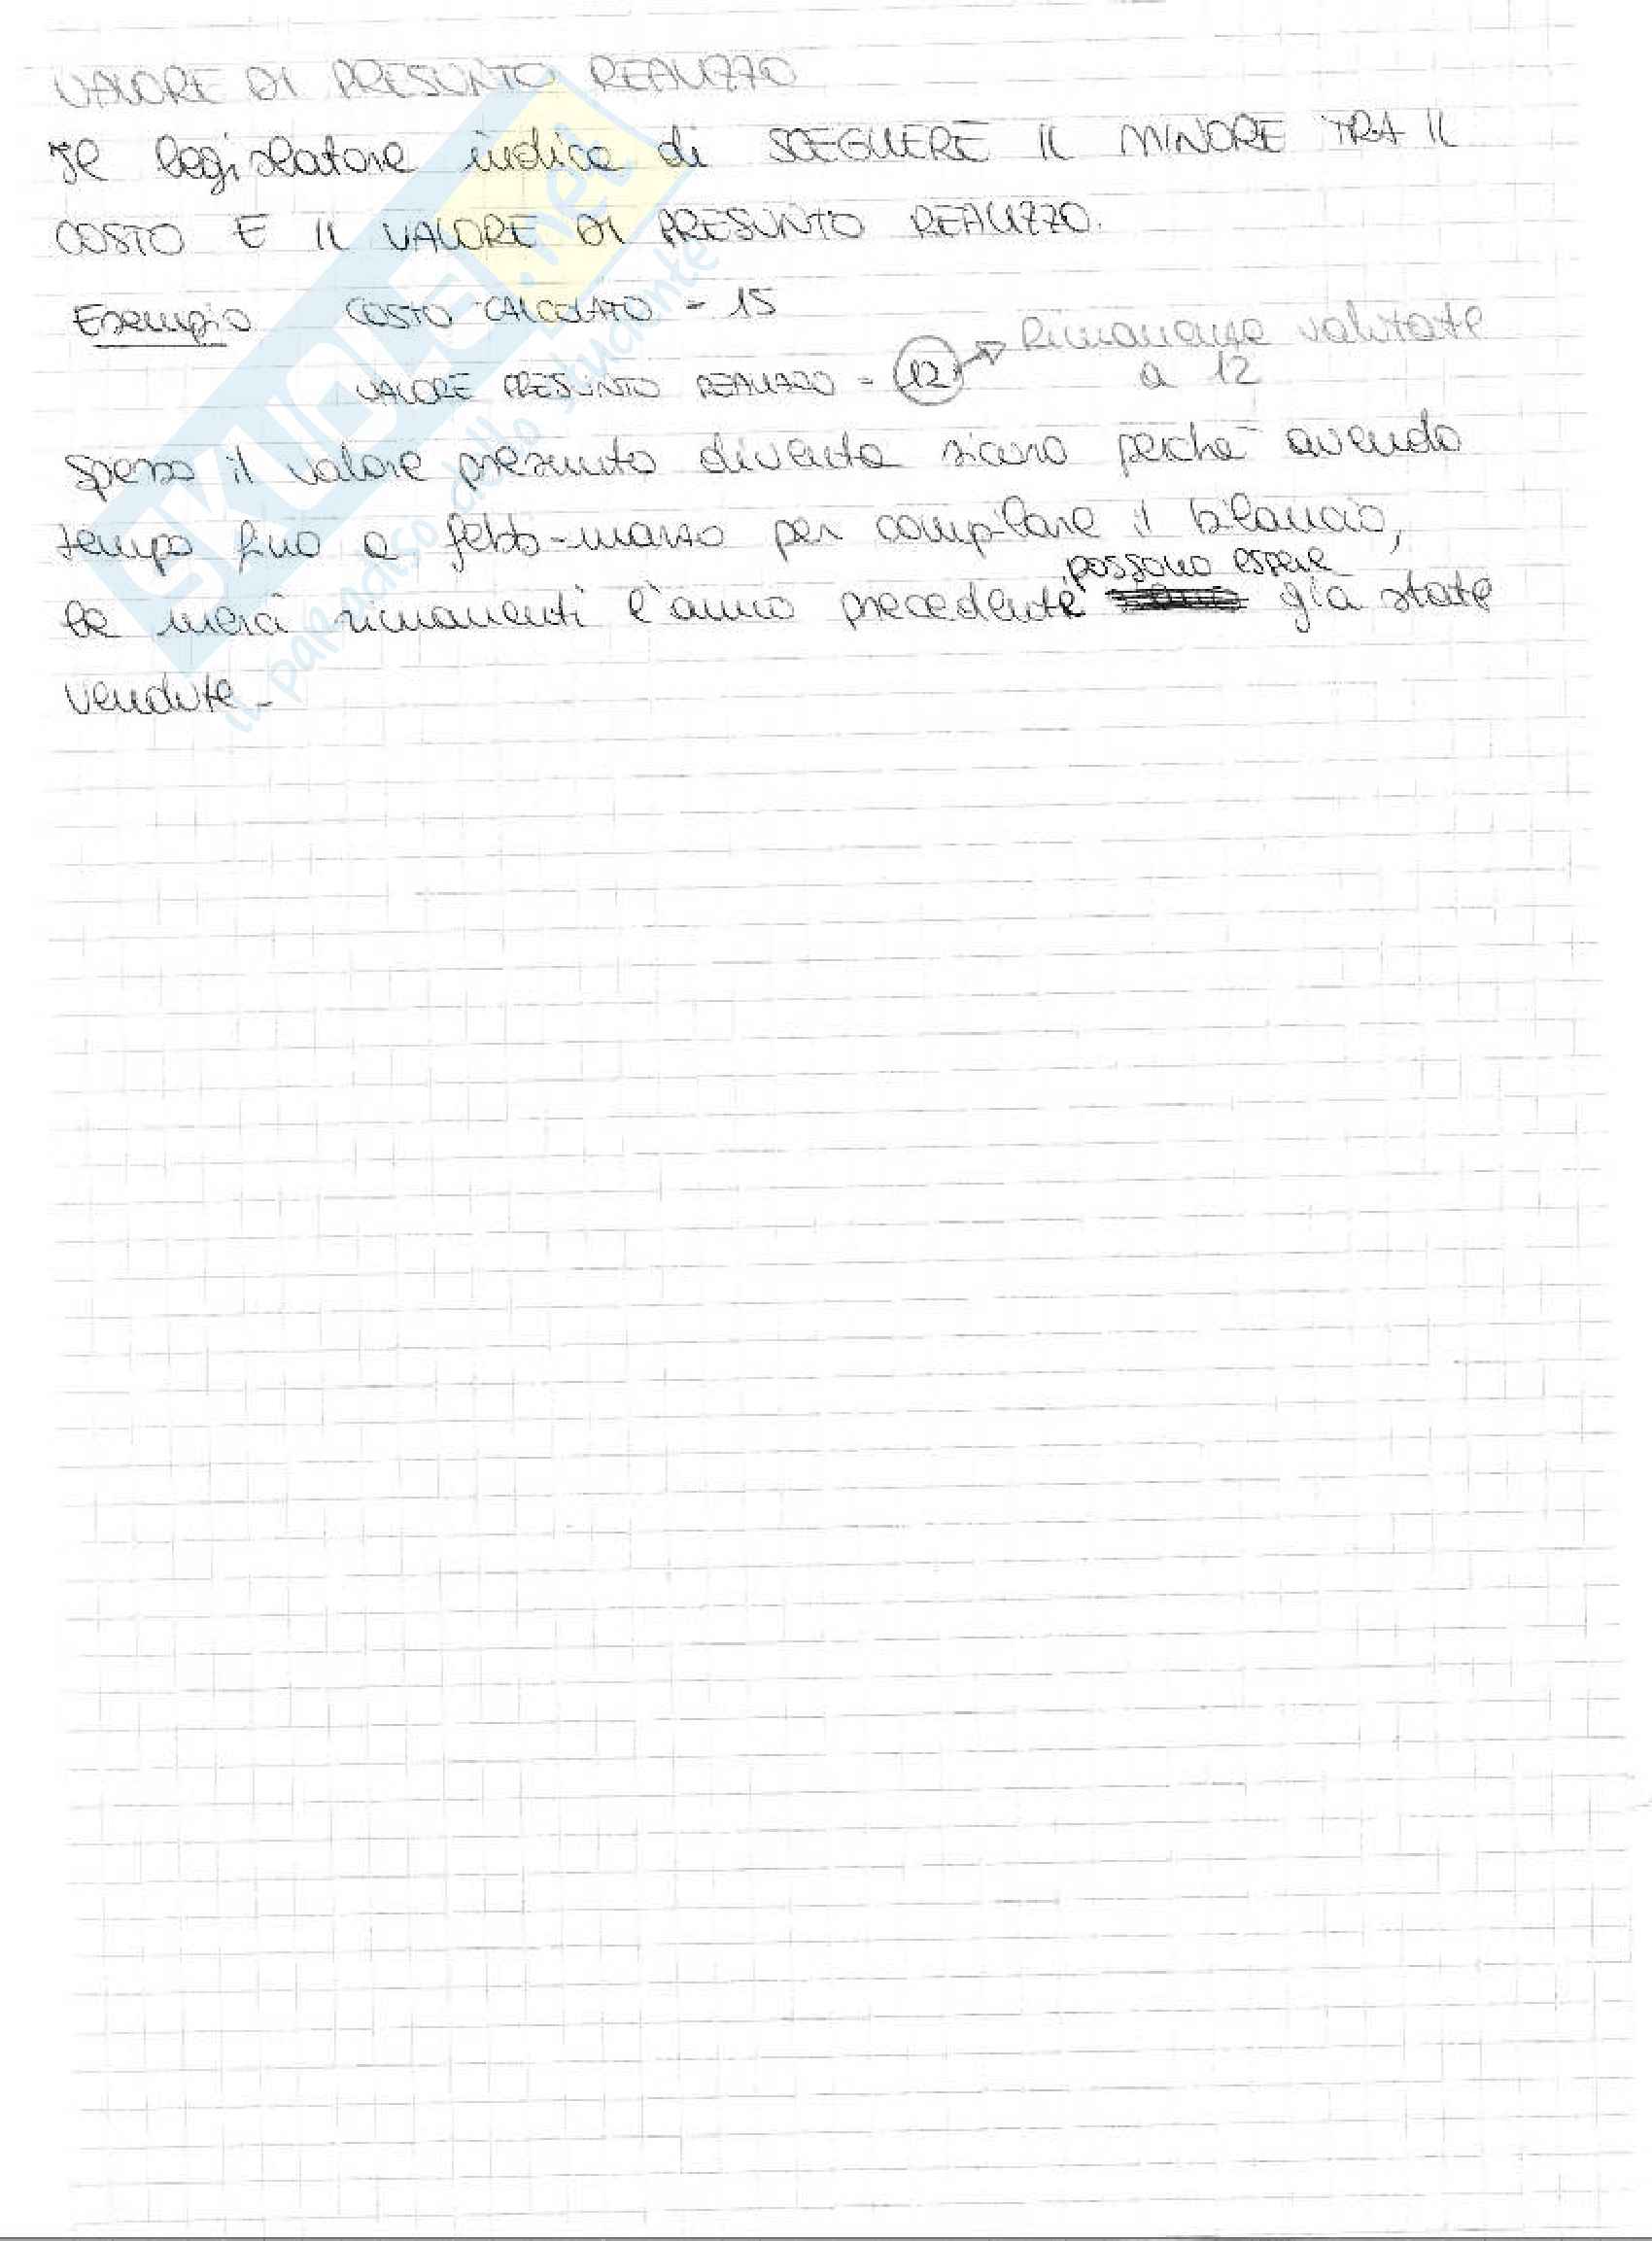 VALORE DI PRESUNTO REALIZZO
Il legislatore indica di SCEGLIERE IL MINORE TRA IL
COSTO E IL VALORE DI PRESUNTO REALIZZO.
Esempio COSTO CALCOLATO = 15
VALORE PRESUNTO REALIZZO = 12 → Rimanenze valutate
a 12
Spesso il valore presunto diventa sicuro perché avendo
tempo fino a febb-marzo per compilare il bilancio,
le merci rimanenti l'anno precedente possono essere già state
vendute.
SKUOLA.net
il paradiso dello studente